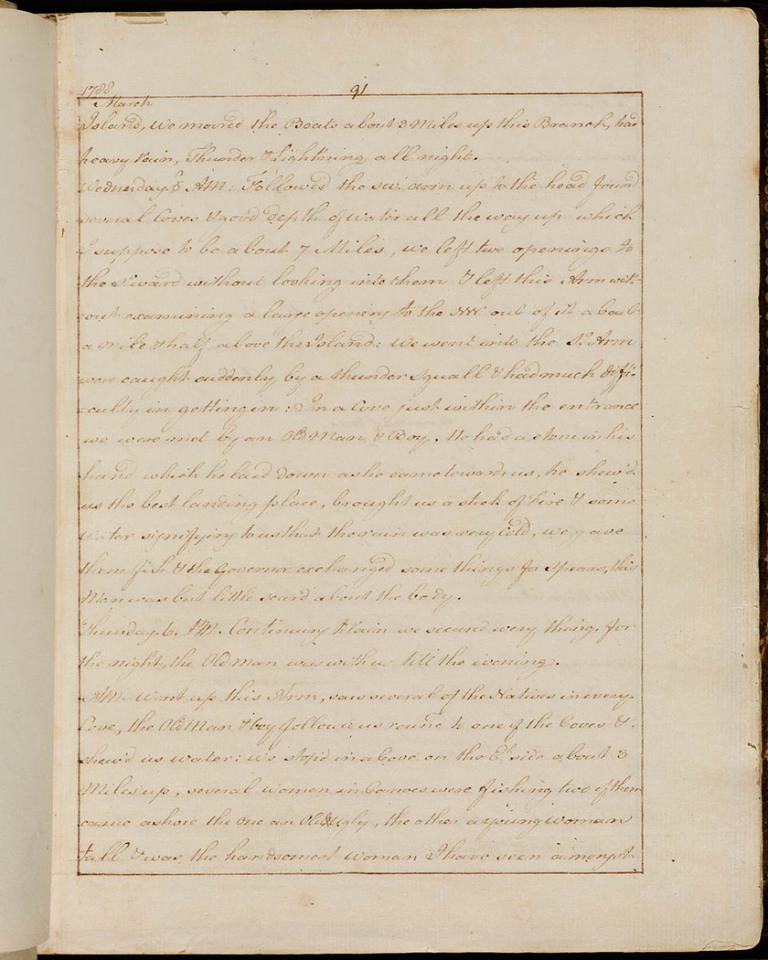 1788
91
March
Island, We moved the Boats about 3 Miles up this Branch, had
heavy rain, Thunder & Lightning all night.
Wednesday 5 AM: Followed the SW. arm up to the head found
several coves & good depth of Water all the way up which
I suppose to be about 7 Miles, we left two openings to
the N'ward without looking into them, & left this Arm with-
out examining a large opening to the out of it about
a Mile & half above the Island: We went into the So Arm
were caught suddenly by a thunder squall & had much diffi-
culty in getting in: In a Cove just within the entrance
we were met by an Old Man & Boy. He had a stone in his
hand which he laid down as he came towards us, he shew'd
us the best landing place, brought us a stick of Fire & some
Water signifying to us that the rain was very Cold, we gave
them fish & the Governor exchanged some things for Spears, this
Man was but little scard about the body.
Thursday 6. PM. Continuing to Rain we secured every thing for
the night, the Old man was with us till the evening.
AM. Went up this Arm, saw several of the Natives in every
Cove, the Old Man & boy follow'd us round to one of the Coves &
shew'd us water: We stop'd in a Cove on the Et. side about 3
Miles up, several women in Canoes were fishing two of them
came ashore the one an Old & Ugly, the other a young woman
tall & was the handsomest woman I have seen amongst